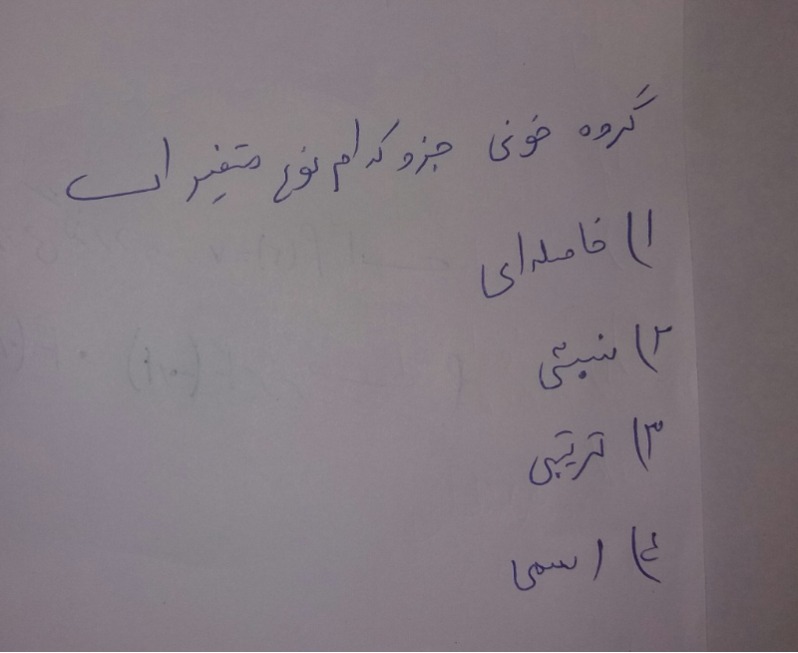 گروه خونی جزو کدام نوع متغیر است
۱) فاصله‌ای
۲) نسبتی
۳) ترتیبی
۴) اسمی